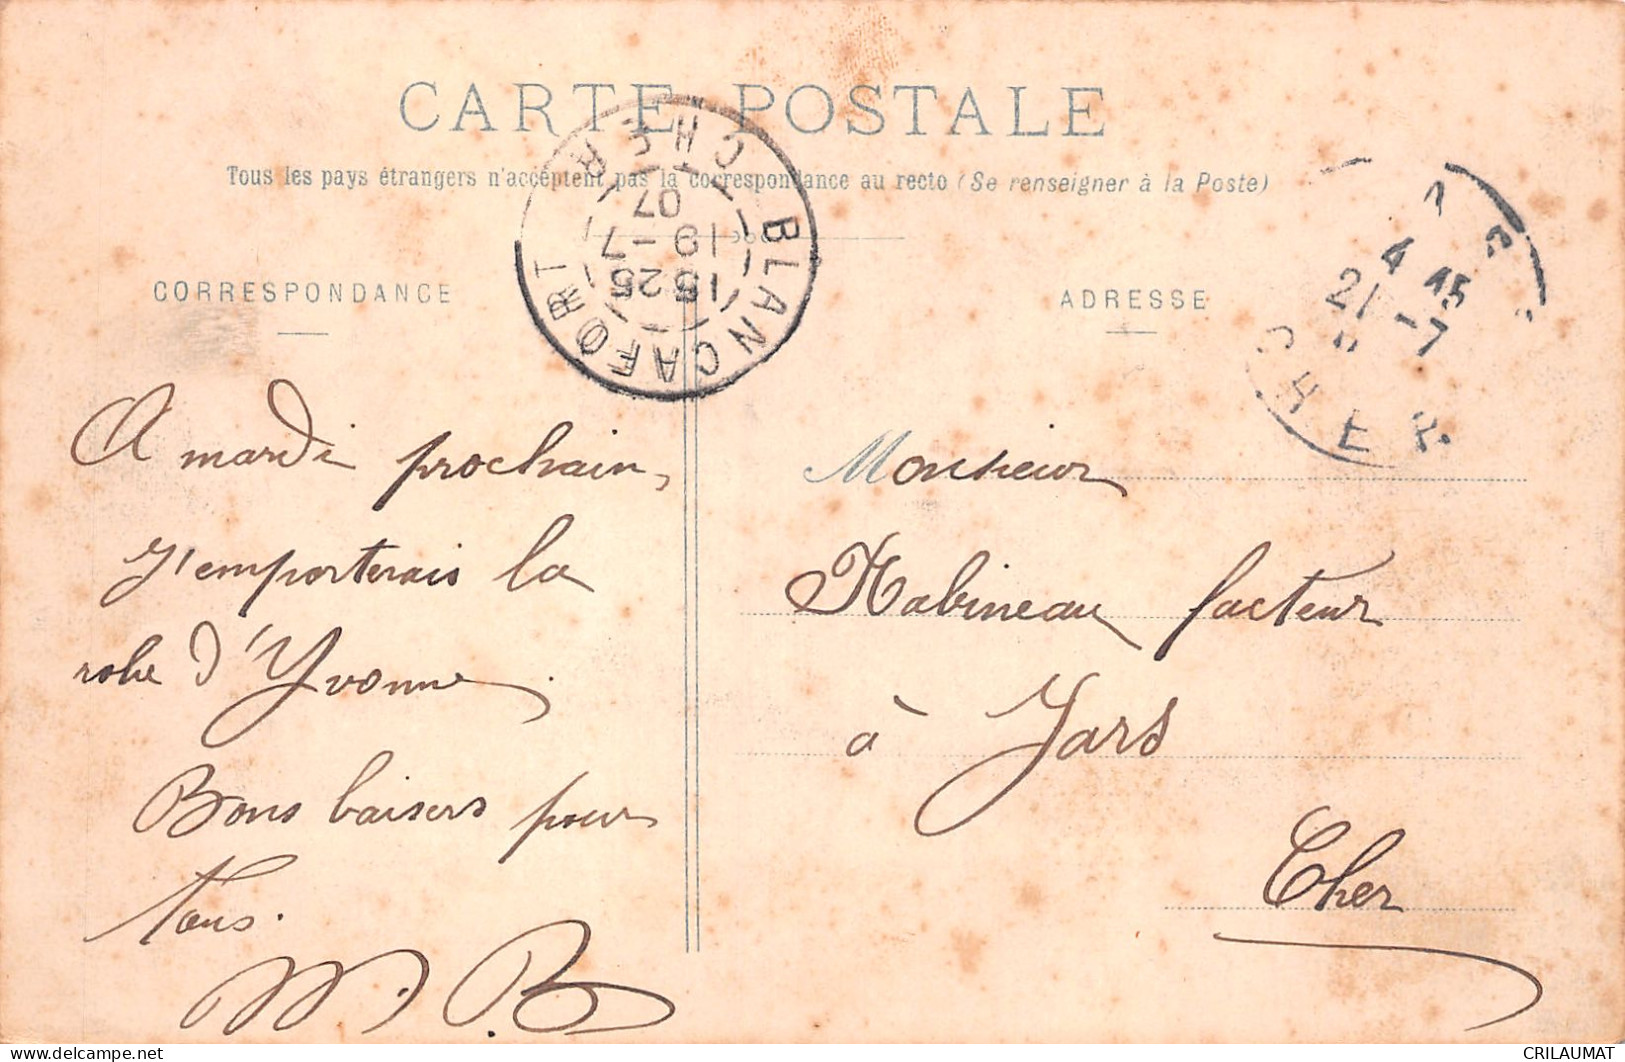 CARTE POSTALE
Tous les pays étrangers n'acceptent pas la correspondance au recto (Se renseigner à la Poste)
CORRESPONDANCE
ADRESSE
BLANCAFORT
CHER
15 25
19 -7
07
4 45
21 -7
CHER
A mardi prochain,
J'emporterais la
robe d'Yvonne.
Bons baisers pour
tous.
M. B
Monsieur
Habineau facteur
à Jars
Cher
delcampe.net
CRILAUMAT